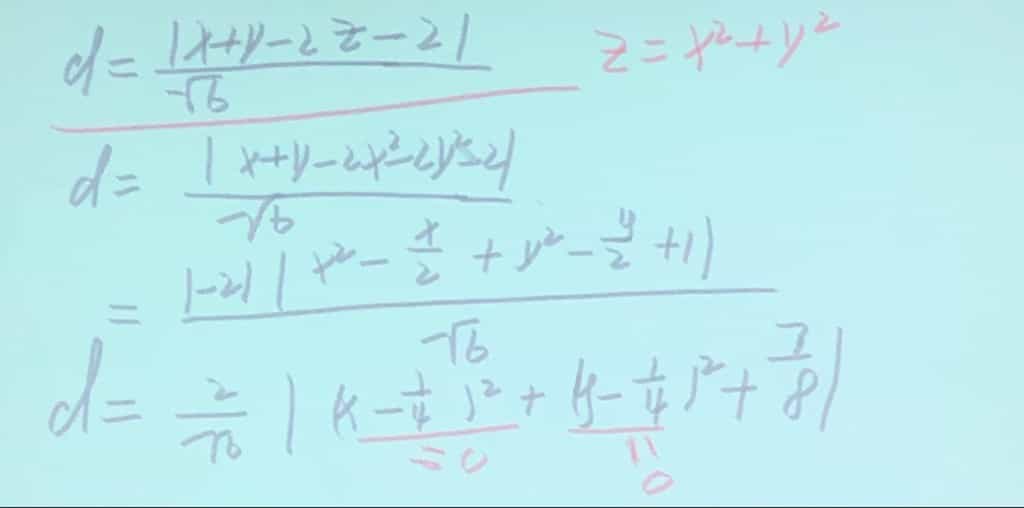 d = |x+y-2z-2| / √6   z = x²+y²
d = |x+y-2x²-2y²-2| / √6
= |-2| |x² - x/2 + y² - y/2 + 1| / √6
d = 2/√6 |(x - 1/4)² + (y - 1/4)² + 7/8|
=0   = 0